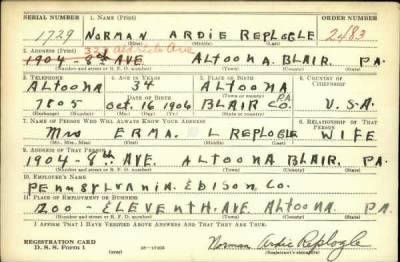 SERIAL NUMBER 1. NAME (Print) ORDER NUMBER
1729 NORMAN ARDIE REPLOGLE 2483
(First) (Middle) (Last)
2. ADDRESS (Print)
1904 - 8th AVE ALTOONA. BLAIR. PA.
(Number and street or R. F. D. number) (Town) (County) (State)
3. TELEPHONE 4. AGE IN YEARS 5. PLACE OF BIRTH 6. COUNTRY OF CITIZENSHIP
ALTOONA 34 ALTOONA
DATE OF BIRTH PA
7805 OCT. 16 1906 BLAIR CO. U.S.A
(Exchange) (Number) (Mo.) (Day) (Yr.) (Town) (County) (State)
7. NAME OF PERSON WHO WILL ALWAYS KNOW YOUR ADDRESS 8. RELATIONSHIP OF THAT PERSON
MRS ERMA. L REPLOGLE WIFE
(Mr., Mrs., Miss) (First) (Middle) (Last)
9. ADDRESS OF THAT PERSON
1904 - 8th AVE. ALTOONA BLAIR. PA.
(Number and street or R. F. D. number) (Town) (County) (State)
10. EMPLOYER'S NAME
PENNSYLVANIA. EDISON CO.
11. PLACE OF EMPLOYMENT OR BUSINESS
1200 - ELEVENTH. AVE. ALTOONA PA.
(Number and street or R. F. D. number) (Town) (County) (State)
I AFFIRM THAT I HAVE VERIFIED ABOVE ANSWERS AND THAT THEY ARE TRUE.
REGISTRATION CARD
D. S. S. Form 1 Norman Ardie Replogle
(Registrant's signature)